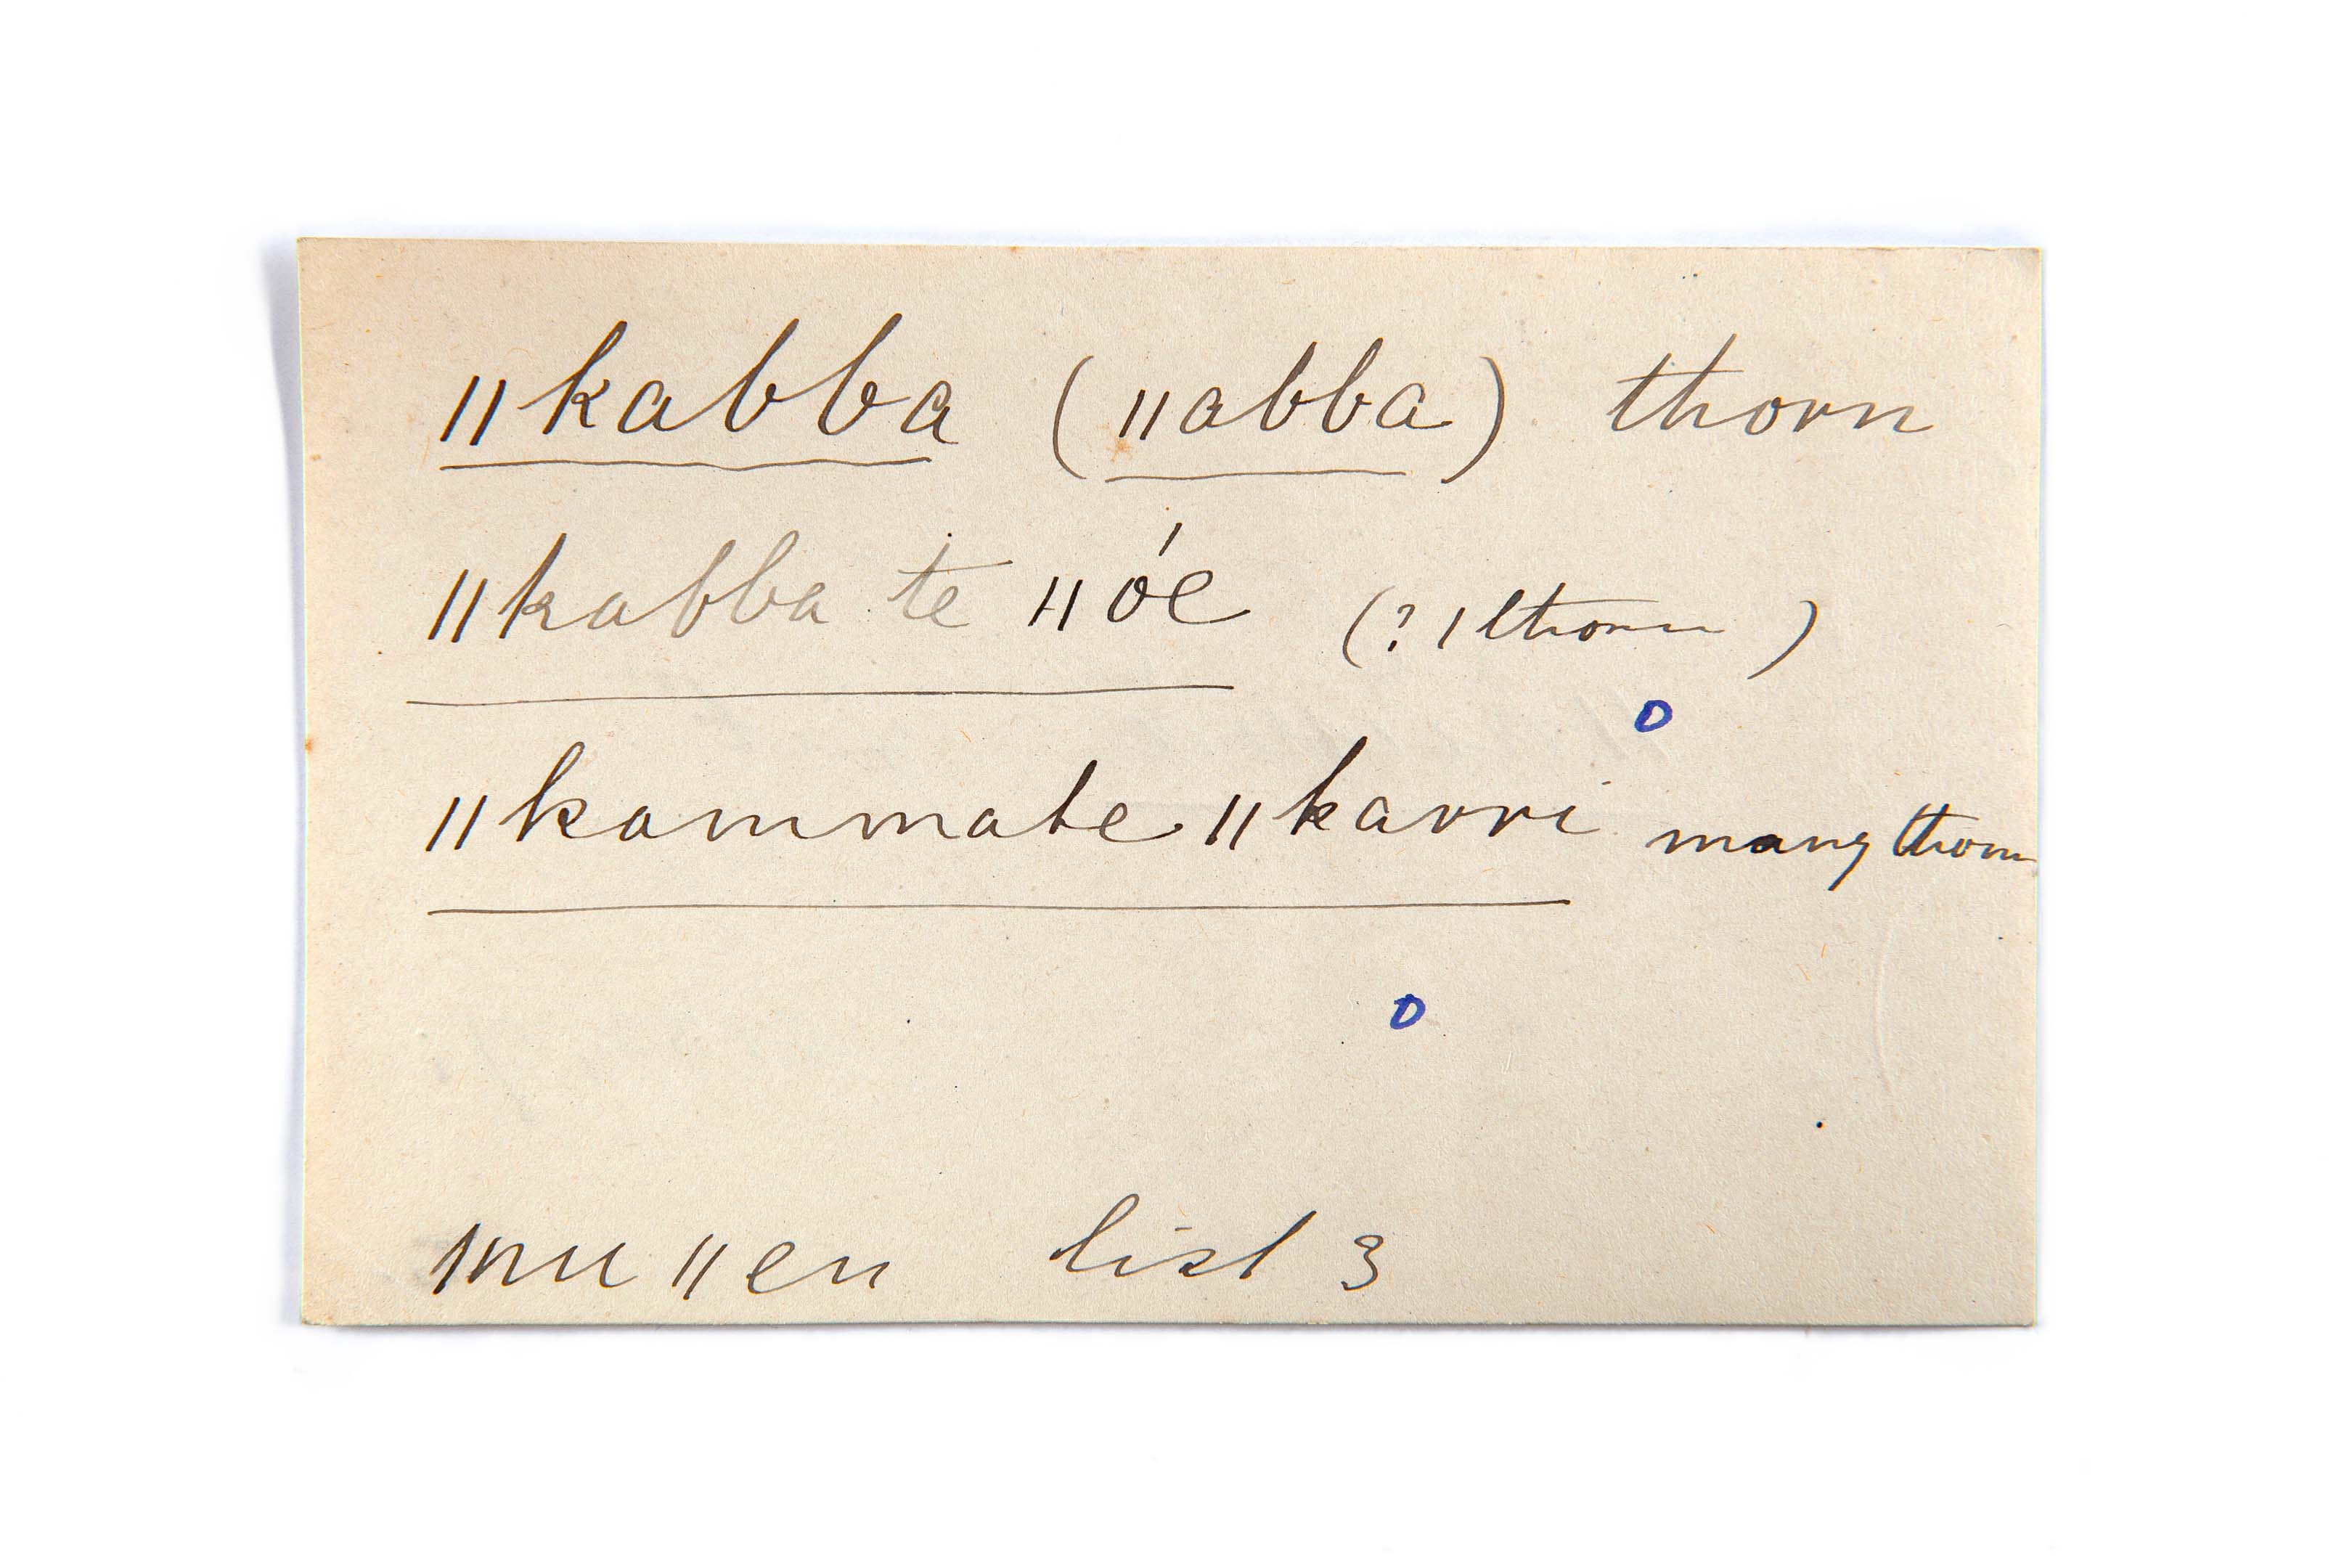 ǁkabba (ǁabba) thorn
ǁkabba te ǁóe (? 1 thorn)
ǁkammate ǁkarri many thorn
ǀnu ǁen list 3